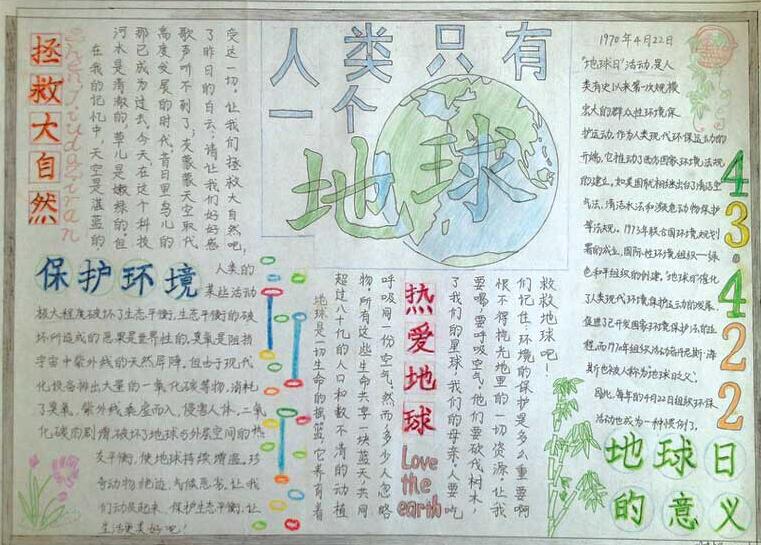 人类只有
一个
地球
拯救大自然
Zhengjiudaziran
在我的记忆中，天空是湛蓝的
河水是清澈的，草儿是嫩绿的。但
那已成为过去。今天，在这个科技
高度发展的时代，昔日里鸟儿的
歌声听不到了；灰蒙蒙天空取代
了昨日的白云；请让我们好好感
受这一切，让我们拯救大自然吧，
保护环境
人类的
某些活动
极大程度破坏了生态平衡，生态平衡的破
坏所造成的恶果是世界性的，臭氧是阻挡
宇宙中紫外线的天然屏障，但由于现代
化设备排出大量的一氧化碳等物，消耗
了臭氧，紫外线乘虚而入，侵害人体，二氧
化碳的剧增，破坏了地球与外层空间的热
交平衡，使地球持续增温，珍
奇动物绝迹，气候恶劣，让我
们动员起来，保护生态平衡，让
生活更美好吧！
热爱地球
Love
the
earth
地球是一切生命的摇篮，它养育着
超过八十亿的人口和数不清的动植
物，所有这些生命共享一块蓝天，共同
呼吸同一份空气。然而，多少人忽略
了我们的星球，我们的母亲，人要吃
要喝，要呼吸空气，他们要砍伐树木，
恨不得挖光地里的一切资源，让我
们记住：环境的保护是多么重要啊
救救地球吧！
1970年4月22日
“地球日”活动，是人
类有史以来第一次规模
宏大的群众性环境保
护运动，作为人类现代环保运动的
开端，它推动了西方国家环境法规
的建立。如美国就相继出台了清洁空
气法、清洁水法和濒危动物保护
等法规，1973年联合国环境规划
署的成立，国际性环境组织——绿
色和平组织的创建，“地球日”催化
了人类现代环境保护运动的发展，
促进了已开发国家环境保护法的进
程，而1970年组织活动者丹尼斯·海
斯也被人称为“地球日之父”。
因此，每年的4月22日组织环保
活动也成为一种惯例了。
43.422
地球日
的意义